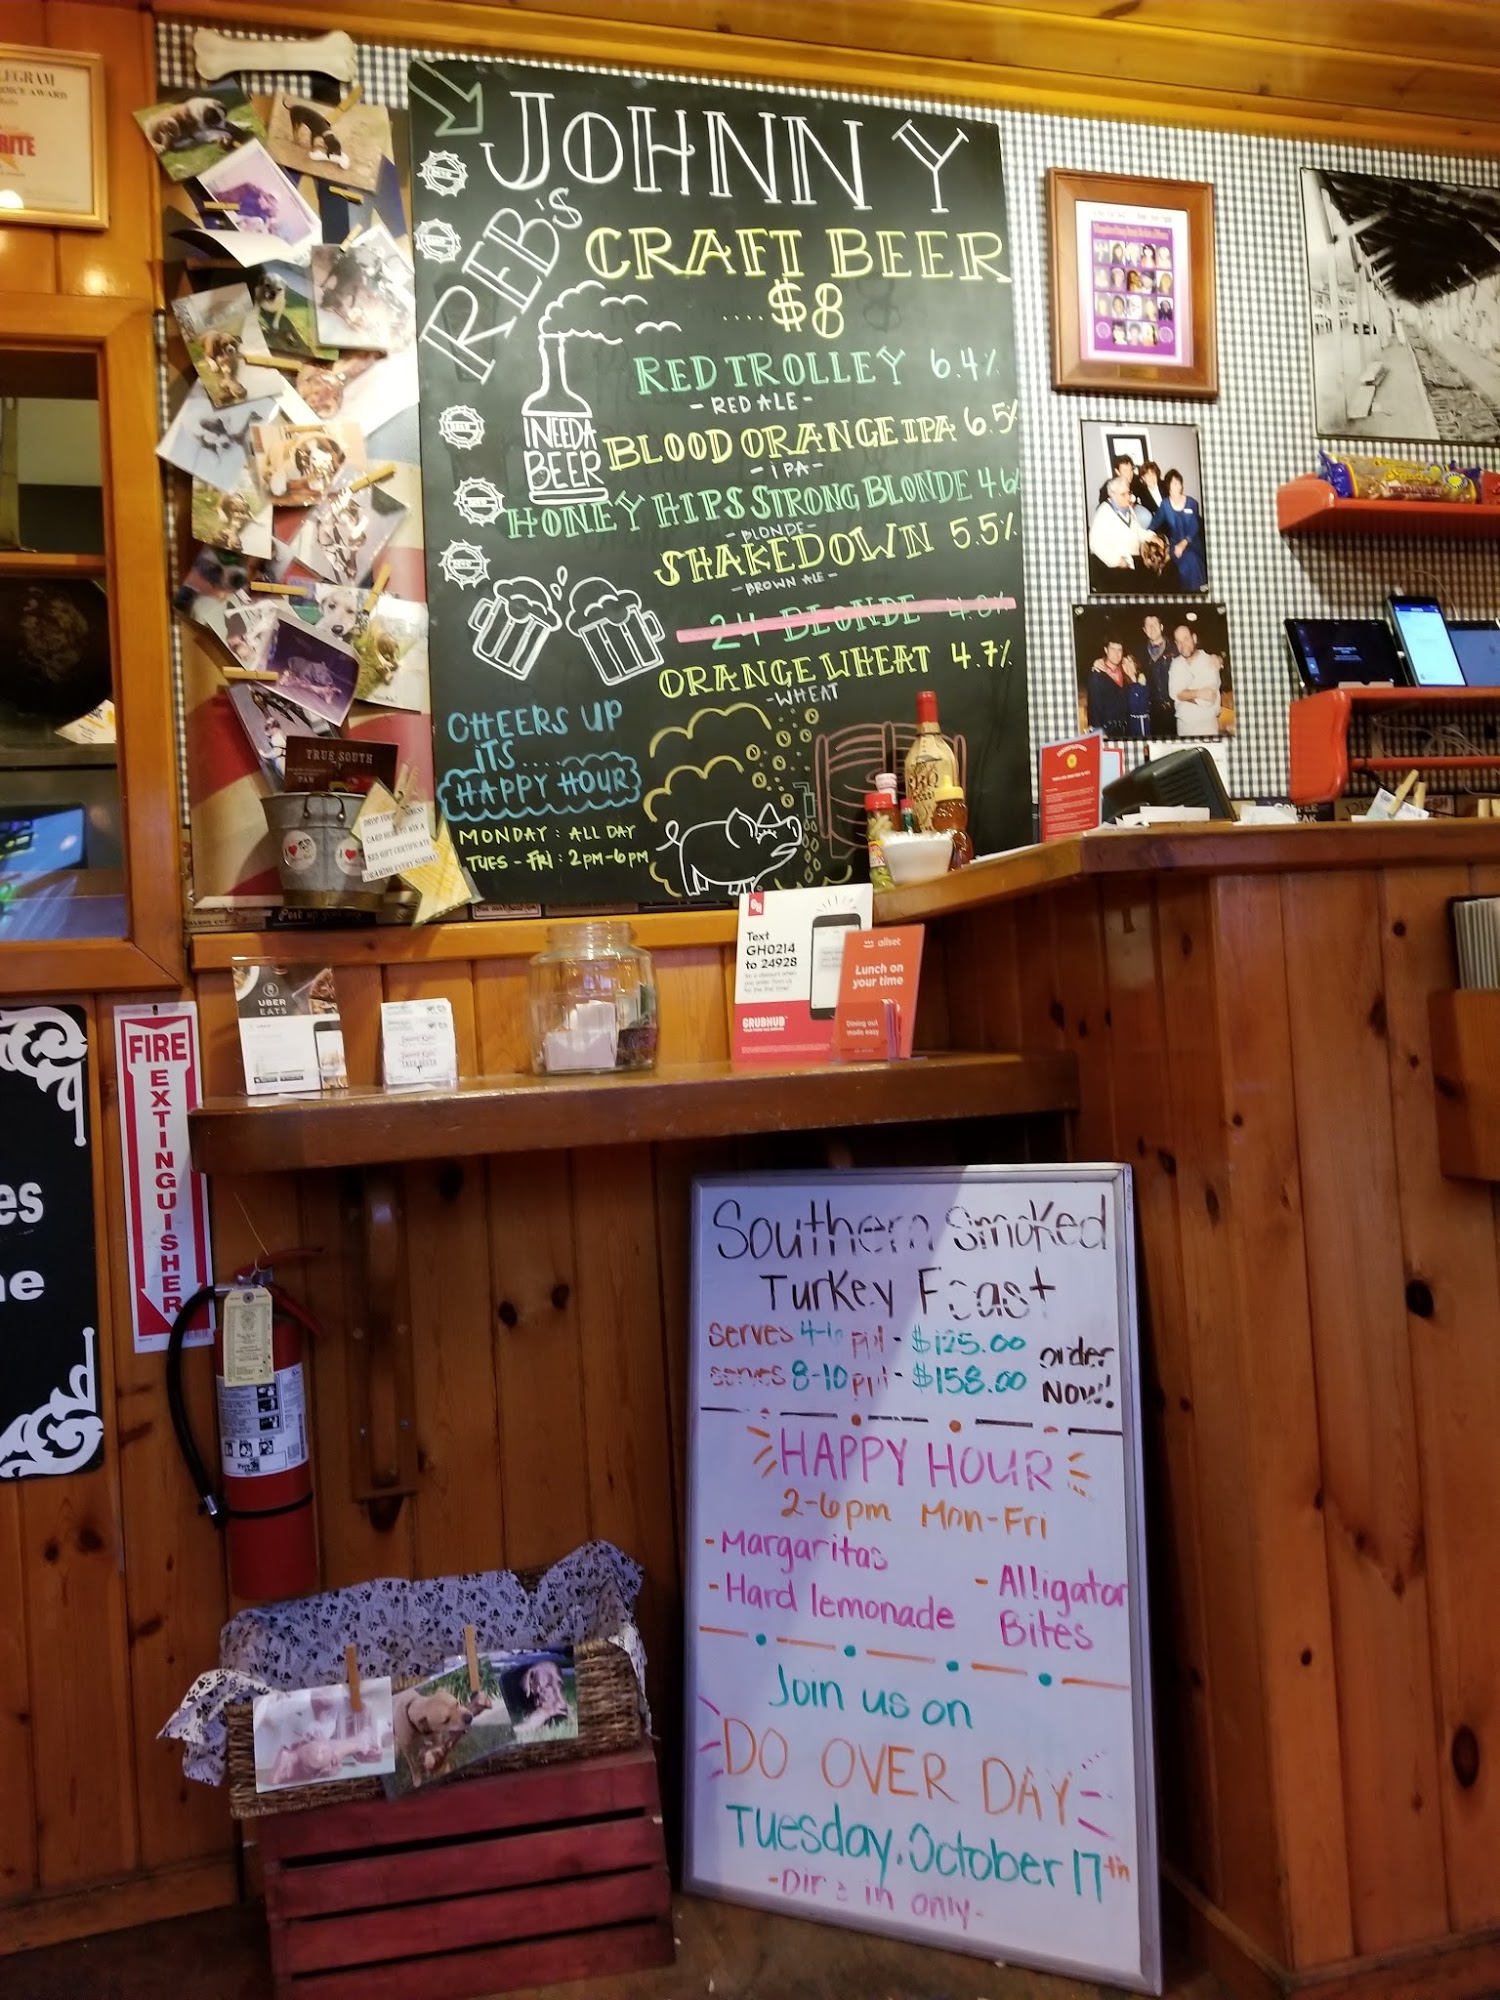 JOHNNY
REB'S
CRAFT BEER
....$8
RED TROLLEY 6.4%
- RED ALE -
BLOOD ORANGE IPA 6.5%
- IPA -
HONEY HIPS STRONG BLONDE 4.6%
- BLONDE -
SHAKEDOWN 5.5%
- BROWN ALE -
24 BLONDE 4.8%
ORANGE WHEAT 4.7%
- WHEAT
I NEED A
BEER
CHEERS UP
ITS....
HAPPY HOUR
MONDAY: ALL DAY
TUES - FRI: 2PM-6PM
TRUE SOUTH
BBQ
UBER
EATS
Text
GH0214
to 24928
GRUBHUB
allset
Lunch on
your time
Dining out
made easy
FIRE
EXTINGUISHER
Southern Smoked
Turkey Feast
serves 4-6 ppl - $125.00
serves 8-10 ppl - $158.00
order
NOW!
HAPPY HOUR
2-6pm Mon-Fri
- Margaritas
- Hard lemonade
- Alligator
Bites
Join us on
DO OVER DAY
Tuesday, October 17th
- Dine in only -